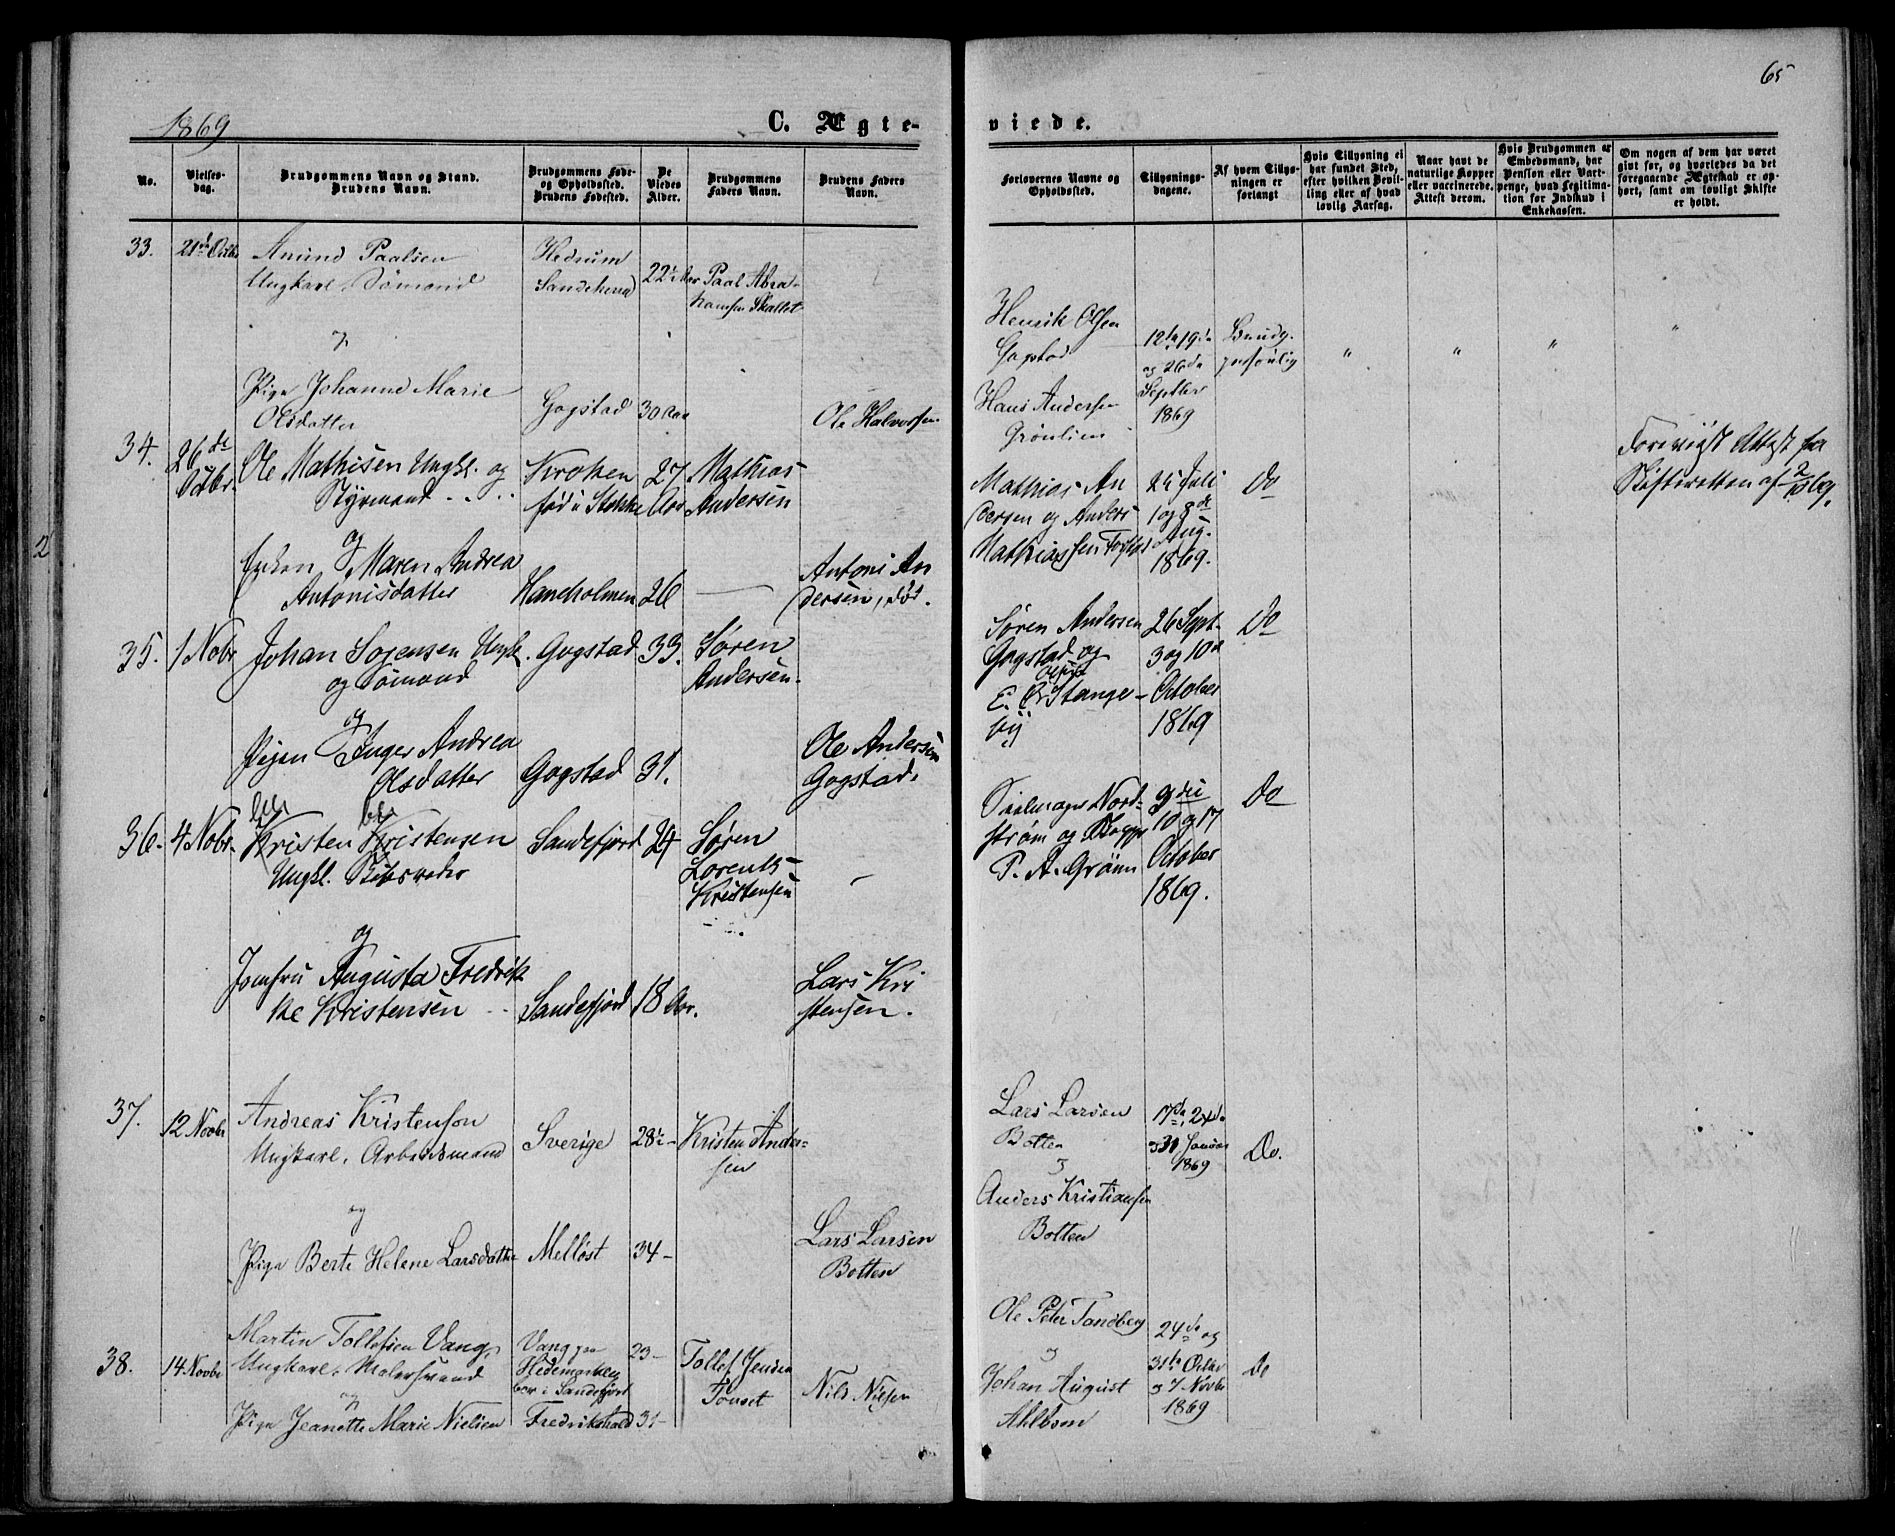 65
1869
C. Ægte-
viede.
No.
Vielses-
dag.
Brudgommens Navn og Stand.
Brudens Navn.
Brudgommens Føde-
og Opholdssted.
Brudens Fødested.
De
Viedes
Alder.
Brudgommens
Faders Navn.
Brudens Faders
Navn.
Forlovernes Navne og
Opholdssted.
Tillysnings-
dagene.
Af hvem Tillys-
ningen er
forlangt
Hvis Tillysning ei
har fundet Sted,
efter hvilken Bevil-
ling eller af hvad
lovlig Aarsag.
Naar havt de
naturlige Kopper
eller vaccinerede.
Attest derom.
Hvis Brudgommen er
Embedsmand, har
Pension eller Vart-
penge, hvad Legitima-
tion for Indskud i
Enkekassen.
Om nogen af dem har været
gift før, og hvorledes da det
foregaaende Ægteskab er op-
hørt, samt om lovligt Skifte
er holdt.
33.
21de Octbr
Amund Paalsen
Ungkarl, Sømand
Hedrum
Sandeherred
22½ Aar
Paal Abra-
hamsen Skallet
og
Pige Johanne Marie
Olsdatter
Gogstad
30 Aar
Ole Halvorsen
Henrik Olsen
Gogstad
Hans Andersen
Grønlien
12te 19de
og 26de
Septbr
1869
Brudg.
personlig
" " " "
34.
26de
Octbr.
Ole Mathisen Ungkl. og
Styrmand
Krokken
fød i Stokke
27
Aar
Mathias
Andersen
og
Enken, Maren Andrea
Antonisdatter
26
Antoni An
dersen, død.
Mathias An
dersen og Anders
Mathiassen
25 Juli
1 og 8de
Aug.
1869.
Do
Forevist Attest fra
Skifteretten af
35.
1 Nobr
Johan Sørensen Ungkl.
og Sømand
Gogstad
33.
Søren
Andersen.
og
Pigen Inger Andrea
Olsdatter
Gogstad
31.
Ole Andersen
Gogstad.
Søren Andersen
Gogstad og
E. Stange-
by
26 Sept.
3 og 10de
October
1869
Do
36.
4 Nobr.
Kristen Kristensen
Ungkl. Skibsreder
Sandefjord
24
Søren
Lorents
Kristensen
og
Jomfru Augusta Fredrik
ke Kristensen
Sandefjord
18 Aar.
Lars Kri
stensen.
Seilmager Nord-
strøm og
P. A. Grønn
3die
10 og 17
October
1869.
Do
37.
12 Novbr
Andreas Kristenson
Ungkarl, Arbeidsmand
Sverige
28½ -
Kristen Ander-
sen
og
Pige Berte Helene Larsdatter
Melløst
34 -
Lars Larsen
Botten
Lars Larsen
Botten
og
Anders Kristiansen
Botten
17de, 24de
og 31 Januar
1869
Do.
38.
14 Novbr
Martin Tollefsen Vang,
Ungkarl, Malersvend
Vang paa
Hedemarken
bor i Sandefjord
23 -
Tollef Jensen
Tonset
og
Pige Jeanette Marie Nielsen
Fredrikshald
31 -
Nils Nilsen
Ole Peter Tandberg
og
Johan August
24de og
31te Octbr
og 7 Novbr
1869
Do